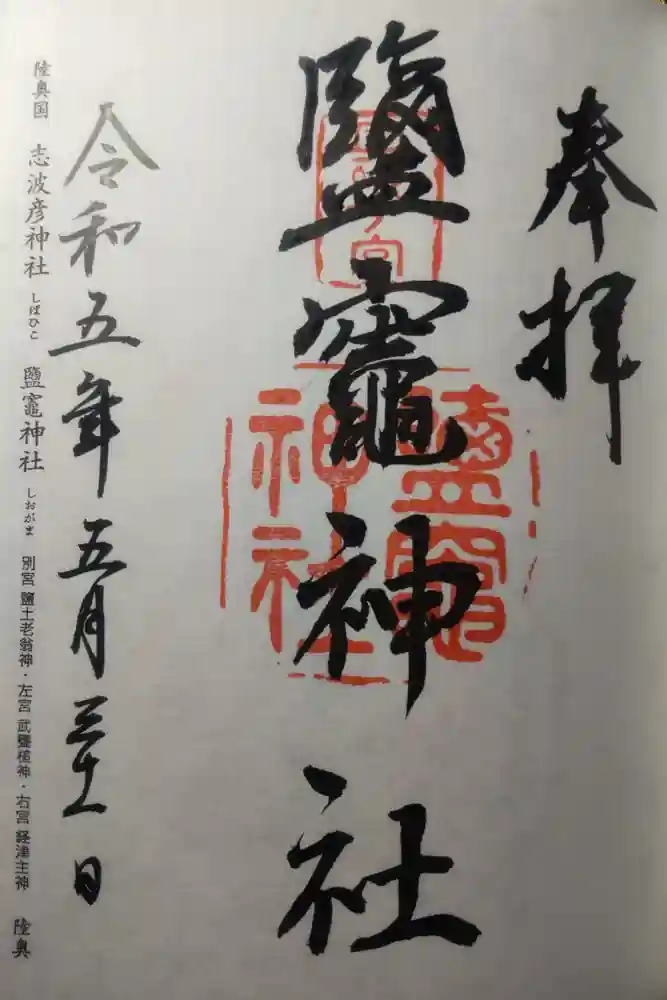 奉拝
鹽竈神社
鹽竈
神社
令和五年五月三十一日
陸奥国 志波彦神社 しばひこ 鹽竈神社 しおがま 別宮 鹽土老翁神・左宮 武甕槌神・右宮 経津主神 陸奥